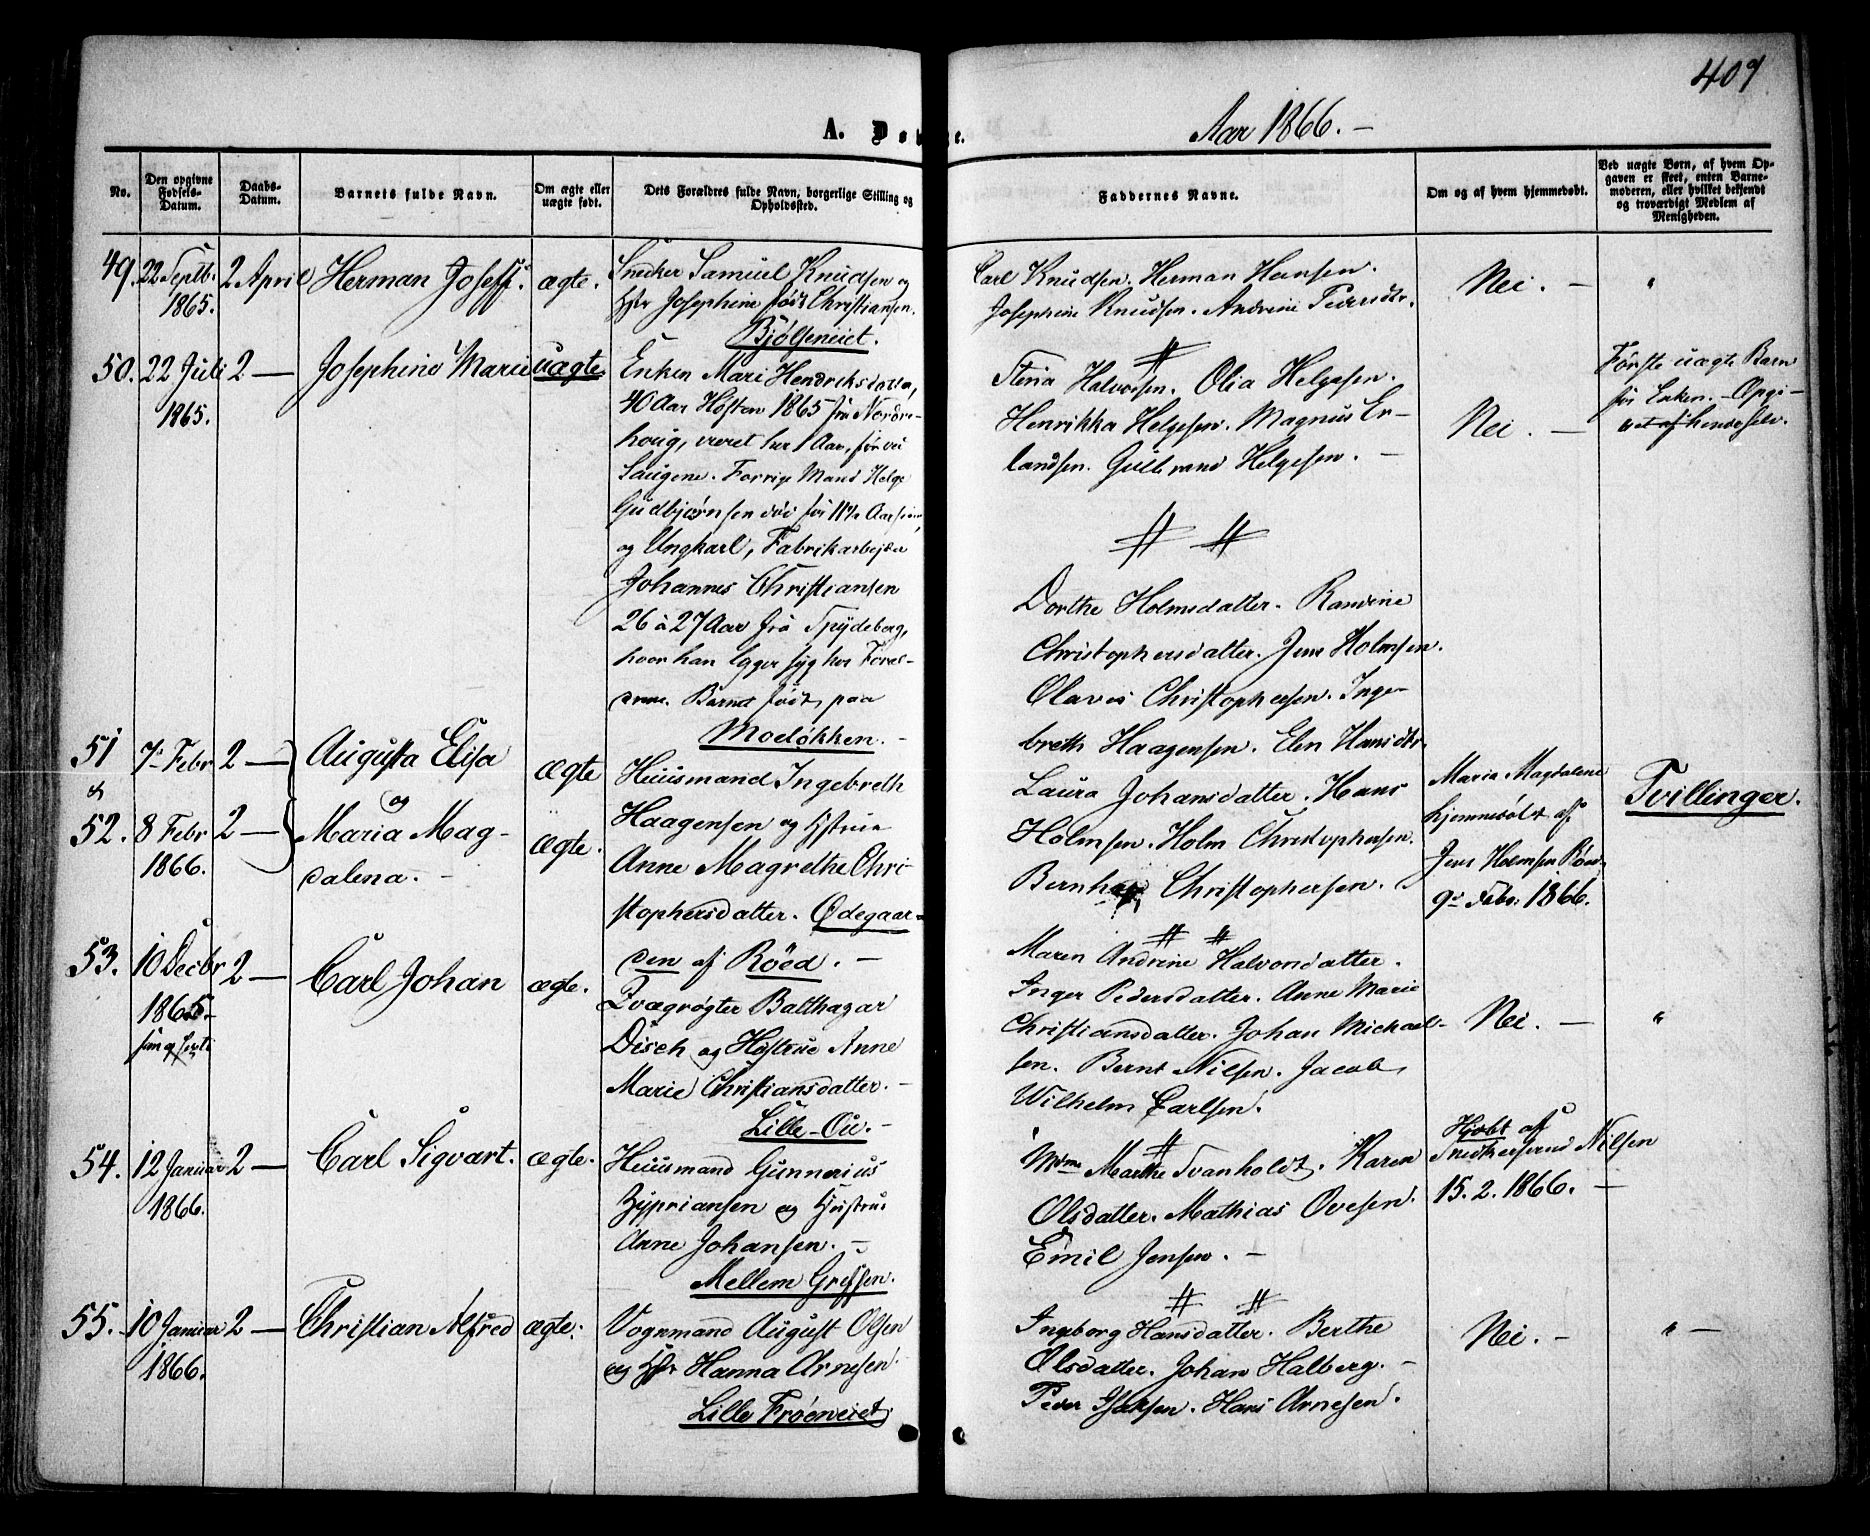 409
A. Døbte.
Aar 1866. –
No.
Den opgivne Fødsels-Datum.
Daabs-Datum.
Barnets fulde Navn.
Om ægte eller uægte født.
Dets Forældres fulde Navn, borgerlige Stilling og Opholdssted.
Faddernes Navne.
Om og af hvem hjemmedøbt.
Ved uægte Børn, af hvem Op-
gaven er skeet, enten Barne-
moderen, eller hvilket bekjendt
og troværdigt Medlem af
Menigheden.
49. 22 Septb. 1865. 2 April Herman Josef. ægte.
Snecker Samuel Knudsen og
Hstr Josephine født Christiansen.
Bjølseneiet.
Carl Knudsen. Herman Hansen.
Josephine Knudsen. Andrine Pedersdtr.
Nei. – "
50. 22 Juli 1865. 2 – Josephine Marie uægte
Enken Mari Hendriksdatter,
40 Aar Høsten 1865 fra Nordre-
houg, været her 1 Aar, før ved
Saugene. Forrige Mand Helge
Gudbjørnsen død for 11½ Aar siden
og Ungkarl, Fabrikarbejder
Johannes Christiansen
26 à 27 Aar fra Spydeberg,
hvor han ligger syg hos Foræl-
drene. Barnet født paa
Moeløkken. –
Stena Halvorsen. Olia Helgesen.
Henrikka Helgesen. Magnus Er-
landsen. Gulbrand Helgesen. –
Nei. –
Første uægte Barn
for Enken. – Opgi-
vet af hende selv.
51 7de Febr 2 – Augusta Elisa ægte
&
og
52. 8 Febr 1866. 2 – Maria Mag-
dalena. – ægte.
Huusmand Ingebreth
Haagensen og Hustrue
Anne Magrethe Chri-
stophersdatter. Ødegaar-
den af Röed. –
Dorthe Holmsdatter. Randine
Christophersdatter. Jens Holmsen.
Olaves Christophersen. Inge-
breth Haagensen. Elen Hansdtr.
Laura Johansdatter. Hans
Holmsen. Holm Christophersen.
Bernhard Christophersen.
Maria Magdalene
hjemmedøbt af
Jens Holmsen Röed
9de Febr. 1866.
Tvillinger.
53. 10 Decbr 1865. 2 – Carl Johan ægte.
Qvægrøgter Balthazar
Disch og Hustrue Anne
Marie Christiansdatter. –
Lille-Ou. –
Maren Andrine Halvorsdatter.
Inger Pedersdatter. Anne Marie
Christiansdatter. Johan Michael-
sen. Bernt Nilsen. Jacob
Wilhelm Carlsen.
Nei. – "
54. 12 Januar 1866. 2 – Carl Sigvart. ægte.
Huusmand Gunnerius
Zypriansen og Hustrue
Anne Johansen. –
Mellem Grefsen.
Mdme Marthe Svanholdt. Karen
Olsdatter. Mathias Ovesen.
Emil Jensen. –
Hjdbt af
Nilsen
15. 2. 1866. –
55. 10 Januar 1866. 2 – Christian Alfred ægte.
Vognmand August Olsen
og Hstr Hanna Arnesen.
Lille Frøeneiet.
Ingeborg Hansdatter. Berthe
Olsdatter. Johan Halberg. –
Peder Isaksen. Hans Arnesen.
Nei. – " –